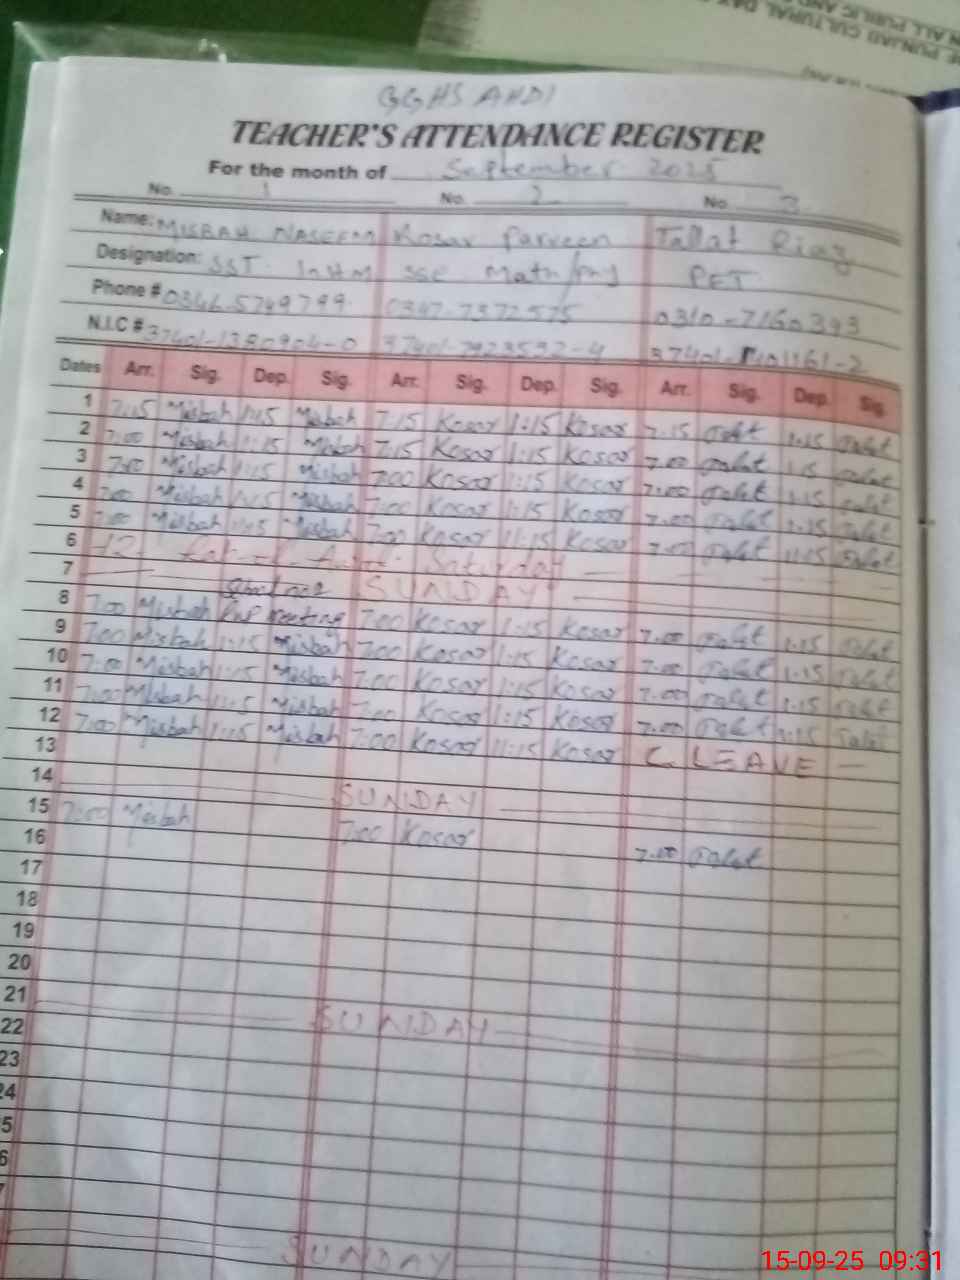 E PUNJAB CULTURAL DAY
N ALL PUBLIC AND
GGHS AHDI
TEACHER'S ATTENDANCE REGISTER
For the month of September 2025
No. 1 No. 2 No. 3
Name: MISBAH NASEEM Kosar Parveen Tallat Riaz
Designation: SST. InHM SSE Math/phy PET
Phone # 0346-5749799 0347-7372575 0310-7160393
N.I.C # 37401-1380904-0 37401-7923592-4 37401-
Dates Arr. Sig. Dep. Sig. Arr. Sig. Dep. Sig. Arr. Sig. Dep. Sig.
1 7:15 Misbah 1:15 Misbah 7:15 Kosar 1:15 Kosar 7.15 Talat 1.15 Talat
2 7:00 Misbah 1:15 Misbah 7:15 Kosar 1:15 Kosar 7.00 Talat 1.15 Talat
3 7:00 Misbah 1:15 Misbah 7:00 Kosar 1:15 Kosar 7.00 Talat 1.15 Talat
4 7:00 Misbah 1:15 Misbah 7:00 Kosar 1:15 Kosar 7.00 Talat 1.15 Talat
5 7:00 Misbah 1:15 Misbah 7:00 Kosar 11:15 Kosar 7.00 Talat 11:15 Talat
6 12 Saturday
7 SUNDAY
8 7:00 Misbah meeting 7:00 Kosar 1:15 Kosar 7.00 Talat 1.15 Talat
9 7:00 Misbah 1:15 Misbah 7:00 Kosar 1:15 Kosar 7.00 Talat 1.15 Talat
10 7:00 Misbah 1:15 Misbah 7:00 Kosar 1:15 Kosar 7.00 Talat 1.15 Talat
11 7:00 Misbah 1:15 Misbah 7:00 Kosar 1:15 Kosar 7.00 Talat 1:15 Talat
12 7:00 Misbah 11:15 Misbah 7:00 Kosar 11:15 Kosar C. LEAVE
13
14 SUNDAY
15 7:00 Misbah 7:00 Kosar 7.00 Talat
16
17
18
19
20
21 SUNDAY
22
23
24
5
6
7
SUNDAY
15-09-25 09:31